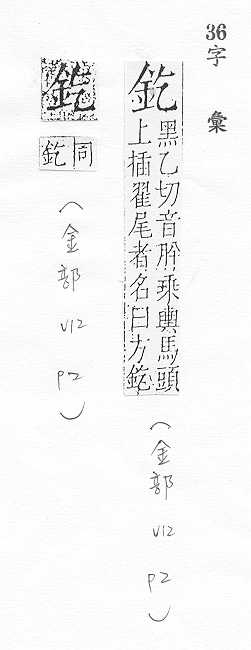 36
字彙
釳
黑乙切音肸乘輿馬頭
上插翟尾者名曰方釳
(金部 V12 P2)
釳
釳同
(金部 V12 P2)